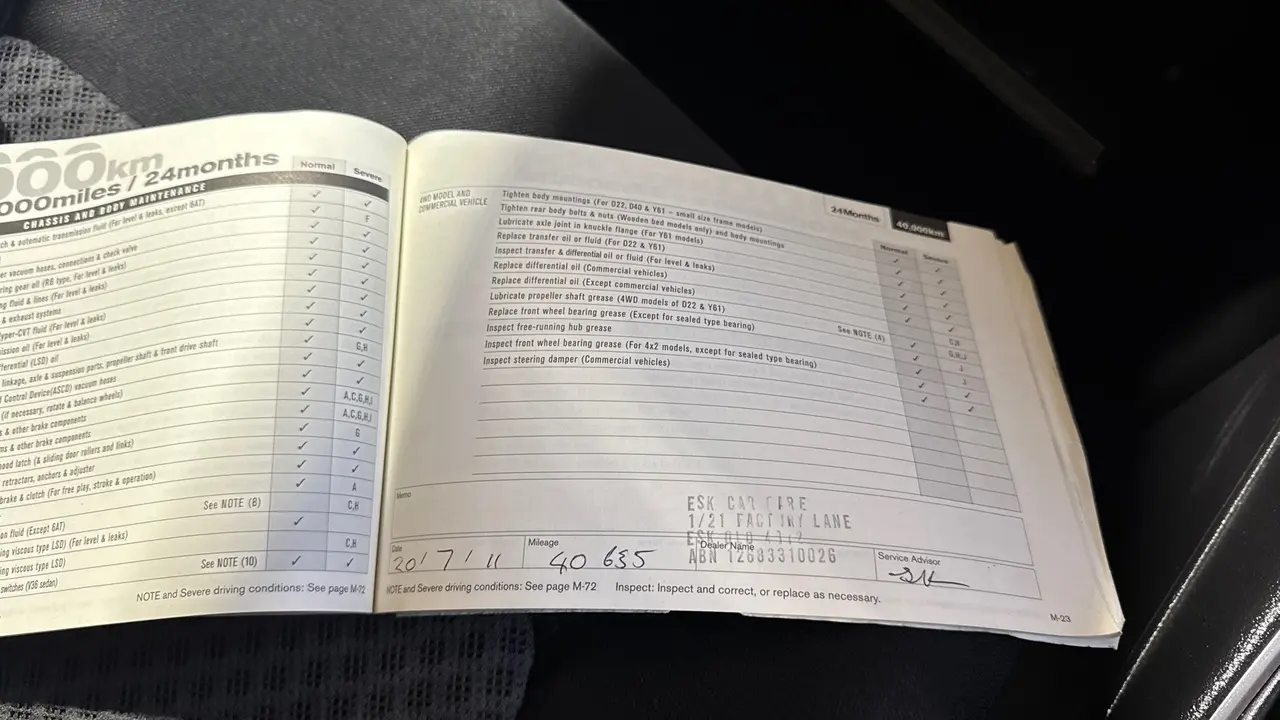 000km
000miles / 24months
Normal Severe
CHASSIS AND BODY MAINTENANCE
ch & automatic transmission fluid (For level & leaks, except 6AT)
F
er vacuum hoses, connections & check valve
ring gear oil (RB type, For level & leaks)
ng fluid & lines (For level & leaks)
& exhaust systems
yper-CVT fluid (For level & leaks)
ission oil (For level & leaks)
fferential (LSD) oil G,H
linkage, axle & suspension parts, propeller shaft & front drive shaft
d Control Device(ASCD) vacuum hoses
(if necessary, rotate & balance wheels) A,C,G,H,I
s & other brake components A,C,G,H,I
ms & other brake components G
hood latch (& sliding door rollers and links)
retractors, anchors & adjuster
brake & clutch (For free play, stroke & operation) A
See NOTE (8) C,H
on fluid (Except 6AT)
ing viscous type LSD) (For level & leaks) C,H
ing viscous type LSD)
switches (V36 sedan) See NOTE (10)
NOTE and Severe driving conditions: See page M-72
24Months 40,000km
Normal Severe
4WD MODEL AND
COMMERCIAL VEHICLE
Tighten body mountings (For D22, D40 & Y61 - small size frame models)
Tighten rear body bolts & nuts (Wooden bed models only) and body mountings
Lubricate axle joint in knuckle flange (For Y61 models)
Replace transfer oil or fluid (For D22 & Y61)
Inspect transfer & differential oil or fluid (For level & leaks)
Replace differential oil (Commercial vehicles)
Replace differential oil (Except commercial vehicles)
Lubricate propeller shaft grease (4WD models of D22 & Y61)
Replace front wheel bearing grease (Except for sealed type bearing) See NOTE (4) C,H
Inspect free-running hub grease G,H,J
Inspect front wheel bearing grease (For 4x2 models, except for sealed type bearing) J
Inspect steering damper (Commercial vehicles) J
Memo
ESK CAR CARE
1/21 FACTORY LANE
ESK QLD 4312
ABN 12683310026
Date 20/7/11
Mileage 40 635
Dealer Name
Service Advisor
NOTE and Severe driving conditions: See page M-72 Inspect: Inspect and correct, or replace as necessary.
M-23